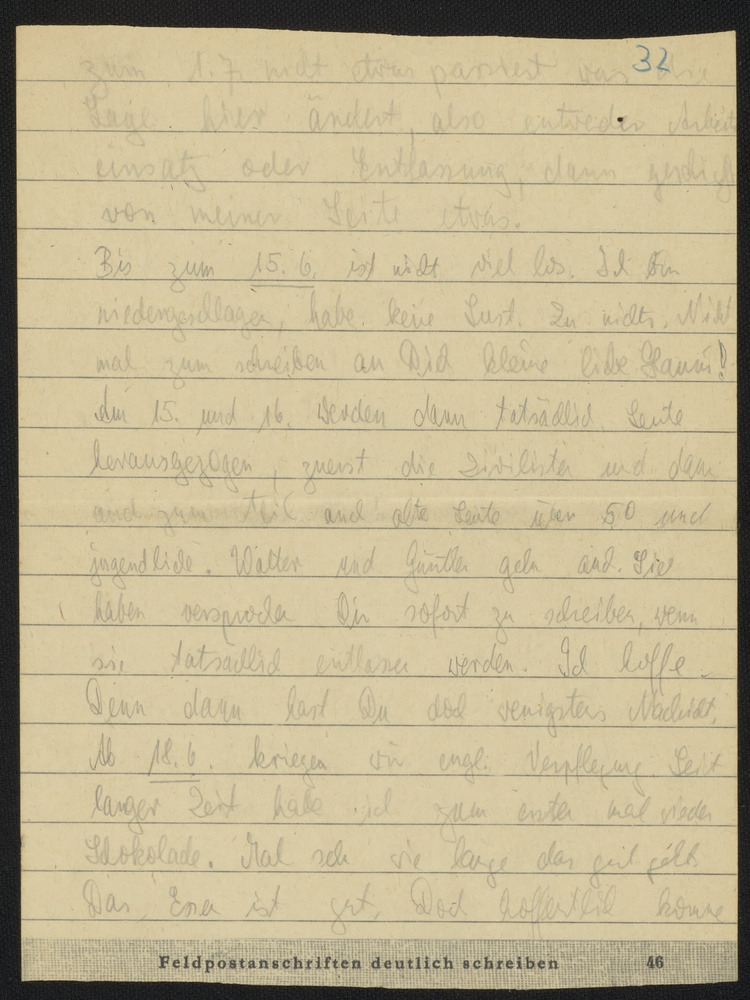 32
zum 1.7. nicht etwas passiert was die
Lage hier ändert, also entweder Arbeits
einsatz oder Entlassung, dann geschieht
von meiner Seite etwas.
Bis zum 15.6. ist nicht viel los. Ich bin
niedergeschlagen, habe keine Lust. Zu nichts. Nicht
mal zum schreiben an Dich kleine liebe Hanni!
Am 15. und 16. werden dann tatsächlich Leute
herausgezogen, zuerst die Zivilisten und dann
auch zum Teil auch alte Leute über 50 und
jugendliche. Walter und Günther gehn auch. Sie
haben versprochen Dir sofort zu schreiben, wenn
sie tatsächlich entlassen werden. Ich hoffe.
Denn dann hast Du doch wenigstens Nachricht.
Ab 18.6. kriegen wir engl. Verpflegung. Seit
langer Zeit habe ich zum ersten mal wieder
Schokolade. Mal sehn wie lange das gut geht.
Das Essen ist gut. Doch hoffentlich komme
Feldpostanschriften deutlich schreiben 46